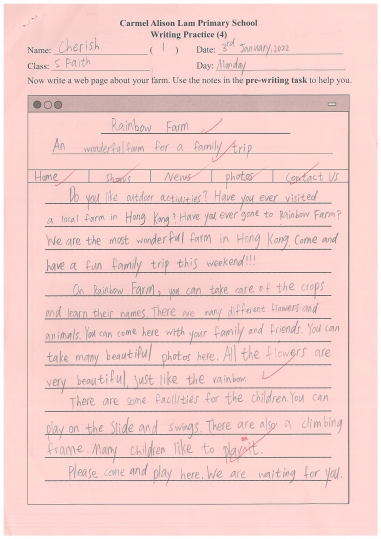 Carmel Alison Lam Primary School
Writing Practice (4)
Name: Cherish ( 1 ) Date: 3rd January, 2022
Class: 5 Faith Day: Monday
Now write a web page about your farm. Use the notes in the pre-writing task to help you.
Rainbow Farm
An wonderful farm for a family trip
Home Shows News photos Contact Us
Do you like outdoor activities? Have you ever visited
a local farm in Hong Kong? Have you ever gone to Rainbow Farm?
We are the most wonderful farm in Hong Kong. Come and
have a fun family trip this weekend!!!
On Rainbow Farm, you can take care of the crops
and learn their names. There are many different flowers and
animals. You can come here with your family and friends. You can
take many beautiful photos here. All the flowers are
very beautiful, just like the rainbow
There are some facilities for the children. You can
play on the slide and swings. There are also a climbing
frame. Many children like to play it.
Please come and play here. We are waiting for you.